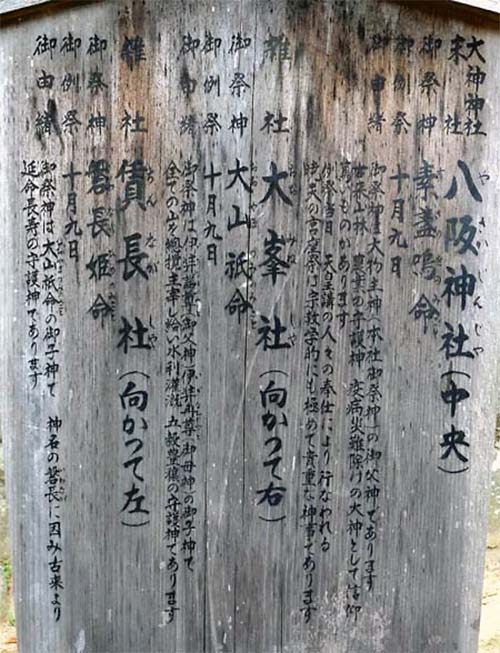 大神神社
末社 八阪神社(中央)
御祭神 素盞嗚命
御例祭 十月九日
御由緒 御祭神は大物主神(本社御祭神)の御父神であります
古来山林、農業の守護神 疫病災難除けの大神として信仰
篤いものがあります
例祭当日 天王講の人々の奉仕により行なわれる
は宗教学的にも極めて貴重な神事であります
雑社 大峯社(向かって右)
御祭神 大山祇命
御例祭 十月九日
御由緒 御祭神は伊弉諾尊(御父神)伊弉冉尊(御母神)の御子神で
全ての山を總攬主宰し給い水利灌漑 五穀豊穣の守護神であります
雑社 賃長社(向かって左)
御祭神 磐長姫命
御例祭 十月九日
御由緒 御祭神は大山祇命の御子神で 神名の磐長に因み古来より
延命長寿の守護神であります